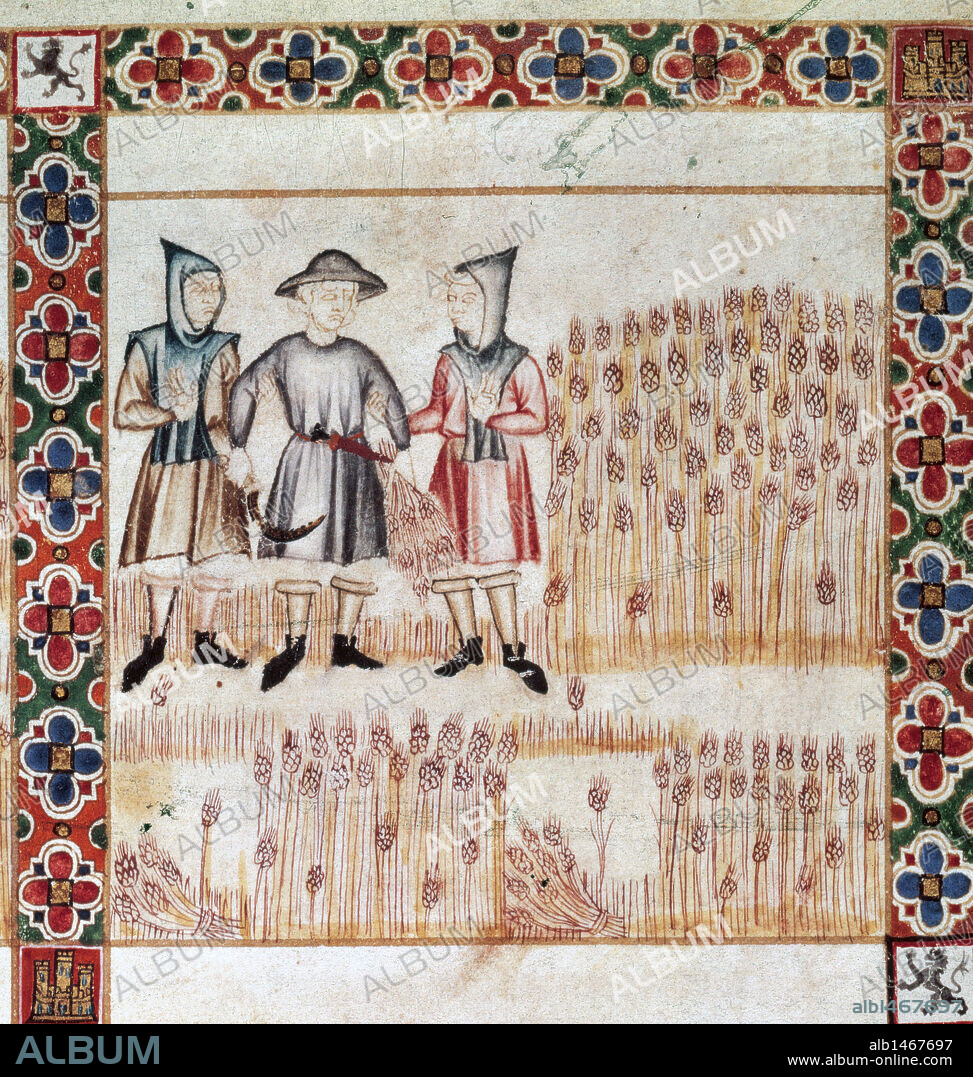 ALBUM
alb1467697
ALBUM
alb1467697
www.album-online.com